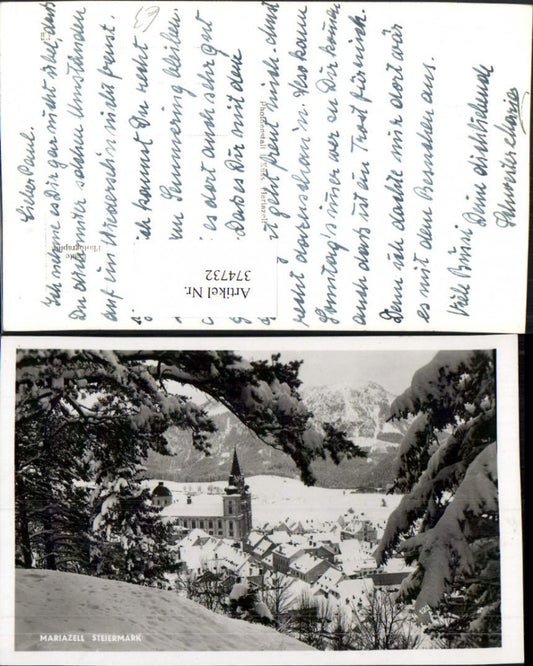 Lieber Paul.
Ich nehme es Dir gar nicht übel, dass
Du dich unter solchen Umständen
auf ein Wiedersehn nicht freust.
ich kannst Du recht
Semmering bleiben.
es dort auch sehr gut
Dass es Dir mit dem
geht freut mich, und
recht
Also kann
Sonntag's immer wer zu Dir kommen
auch das ist ein Trost für mich.
Denn ich dachte mir dort wär
es mit dem Besuchen aus.
Viele Bussi Deine dich liebende
Schwester Maria
Photographie
Mariazell
Artikel Nr.
374732
MARIAZELL STEIERMARK